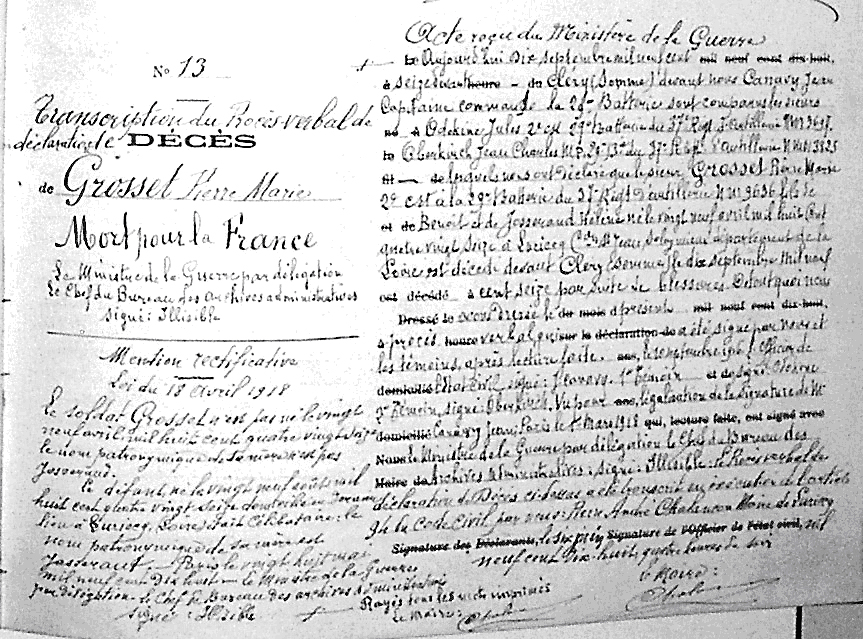 No 13
Transcription du Procès verbal de
déclaration de DÉCÈS
de Grosset Pierre Marie
Mort pour la France
Le Ministre de la Guerre par délégation
Le Chef du Bureau des Archives administratives
signé : Illisible
Mention rectificative
Loi du 18 avril 1918
Le soldat Grosset n'est pas né le vingt
neuf avril mil huit cent quatre vingt seize
le nom patronymique de sa mère n'est pas
Josserand.
Le défunt, né le vingt neuf août mil
huit cent quatre vingt seize domicilié en
lieu à Luriecq, Loire, était célibataire ; le
nom patronymique de sa mère est
Jasseraut. Paris le vingt huit mai
mil neuf cent dix huit - le Ministre de la Guerre
par délégation - le Chef du Bureau des archives administratives
signé : Illisible
Acte reçu du Ministère de la Guerre
Le Aujourd'hui Dix septembre mil neuf cent mil neuf cent dix-huit,
à seize heure - du Cléry (Somme) devant nous Canavy Jean
Capitaine commandt la 28me Batterie sont comparus les sieurs
Odekine Jules 2e cst 29e Batterie du 37e Régt d'Artillerie
Oberkirch Jean Charles du 37e Régt d'Artillerie
lesquels nous ont déclaré que le sieur Grosset Pierre Marie
2e cst à la 29e Batterie du 37e Régt d'artillerie NM 9636 fils de
et de Benoît et de Josserand Hélène né le vingt neuf avril mil huit cent
quatre vingt seize à Luriecq département de la
Loire est décédé devant Cléry (Somme) le dix septembre mil neuf
est décédé à cent seize par suite de blessures. De tout quoi nous
Dressé le avons dressé le du mois à présent mil neuf cent dix-huit,
à procès heure verbal qui sur la déclaration de a été signé par nous et
les témoins, après lecture faite. Officier de
domicilié l'Etat Civil signé : J Canavy. 1er témoin et de signé Odekine
2e témoin, signé : Oberkirch. Vu pour légalisation de la signature de Mr
domicilié Canavy Jean Paris le 1er Mars 1918 qui, lecture faite, ont signé avec
Nous le Ministre de la Guerre par délégation le Chef du Bureau des
Maire de Archives Administratives : signé : Illisible. Le Procès verbal de
déclaration de Décès ci-dessus a été transcrit en exécution de l'article
94 du Code Civil par nous Maire de Luriecq
Signature des Déclarants, le six Signature de l'Officier de l'état civil, mil
neuf cent dix-huit, quatre heures du soir
Rayés tous les mots imprimés
Le Maire :
le Maire :